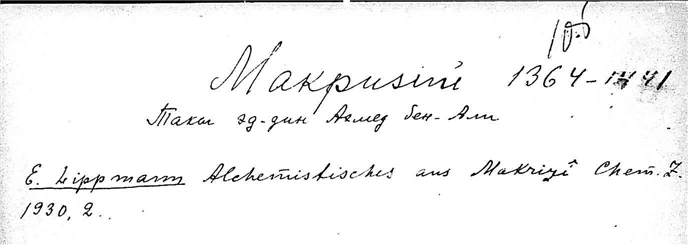 105
Макризи 1364-1441
Таки эд-дин Ахмед бен-Али
E. Lippmann Alchemistisches aus Makrizî Chem. Z.
1930, 2..